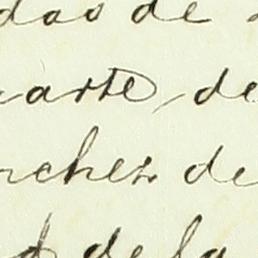 dos de
arte, de
nches de
de la